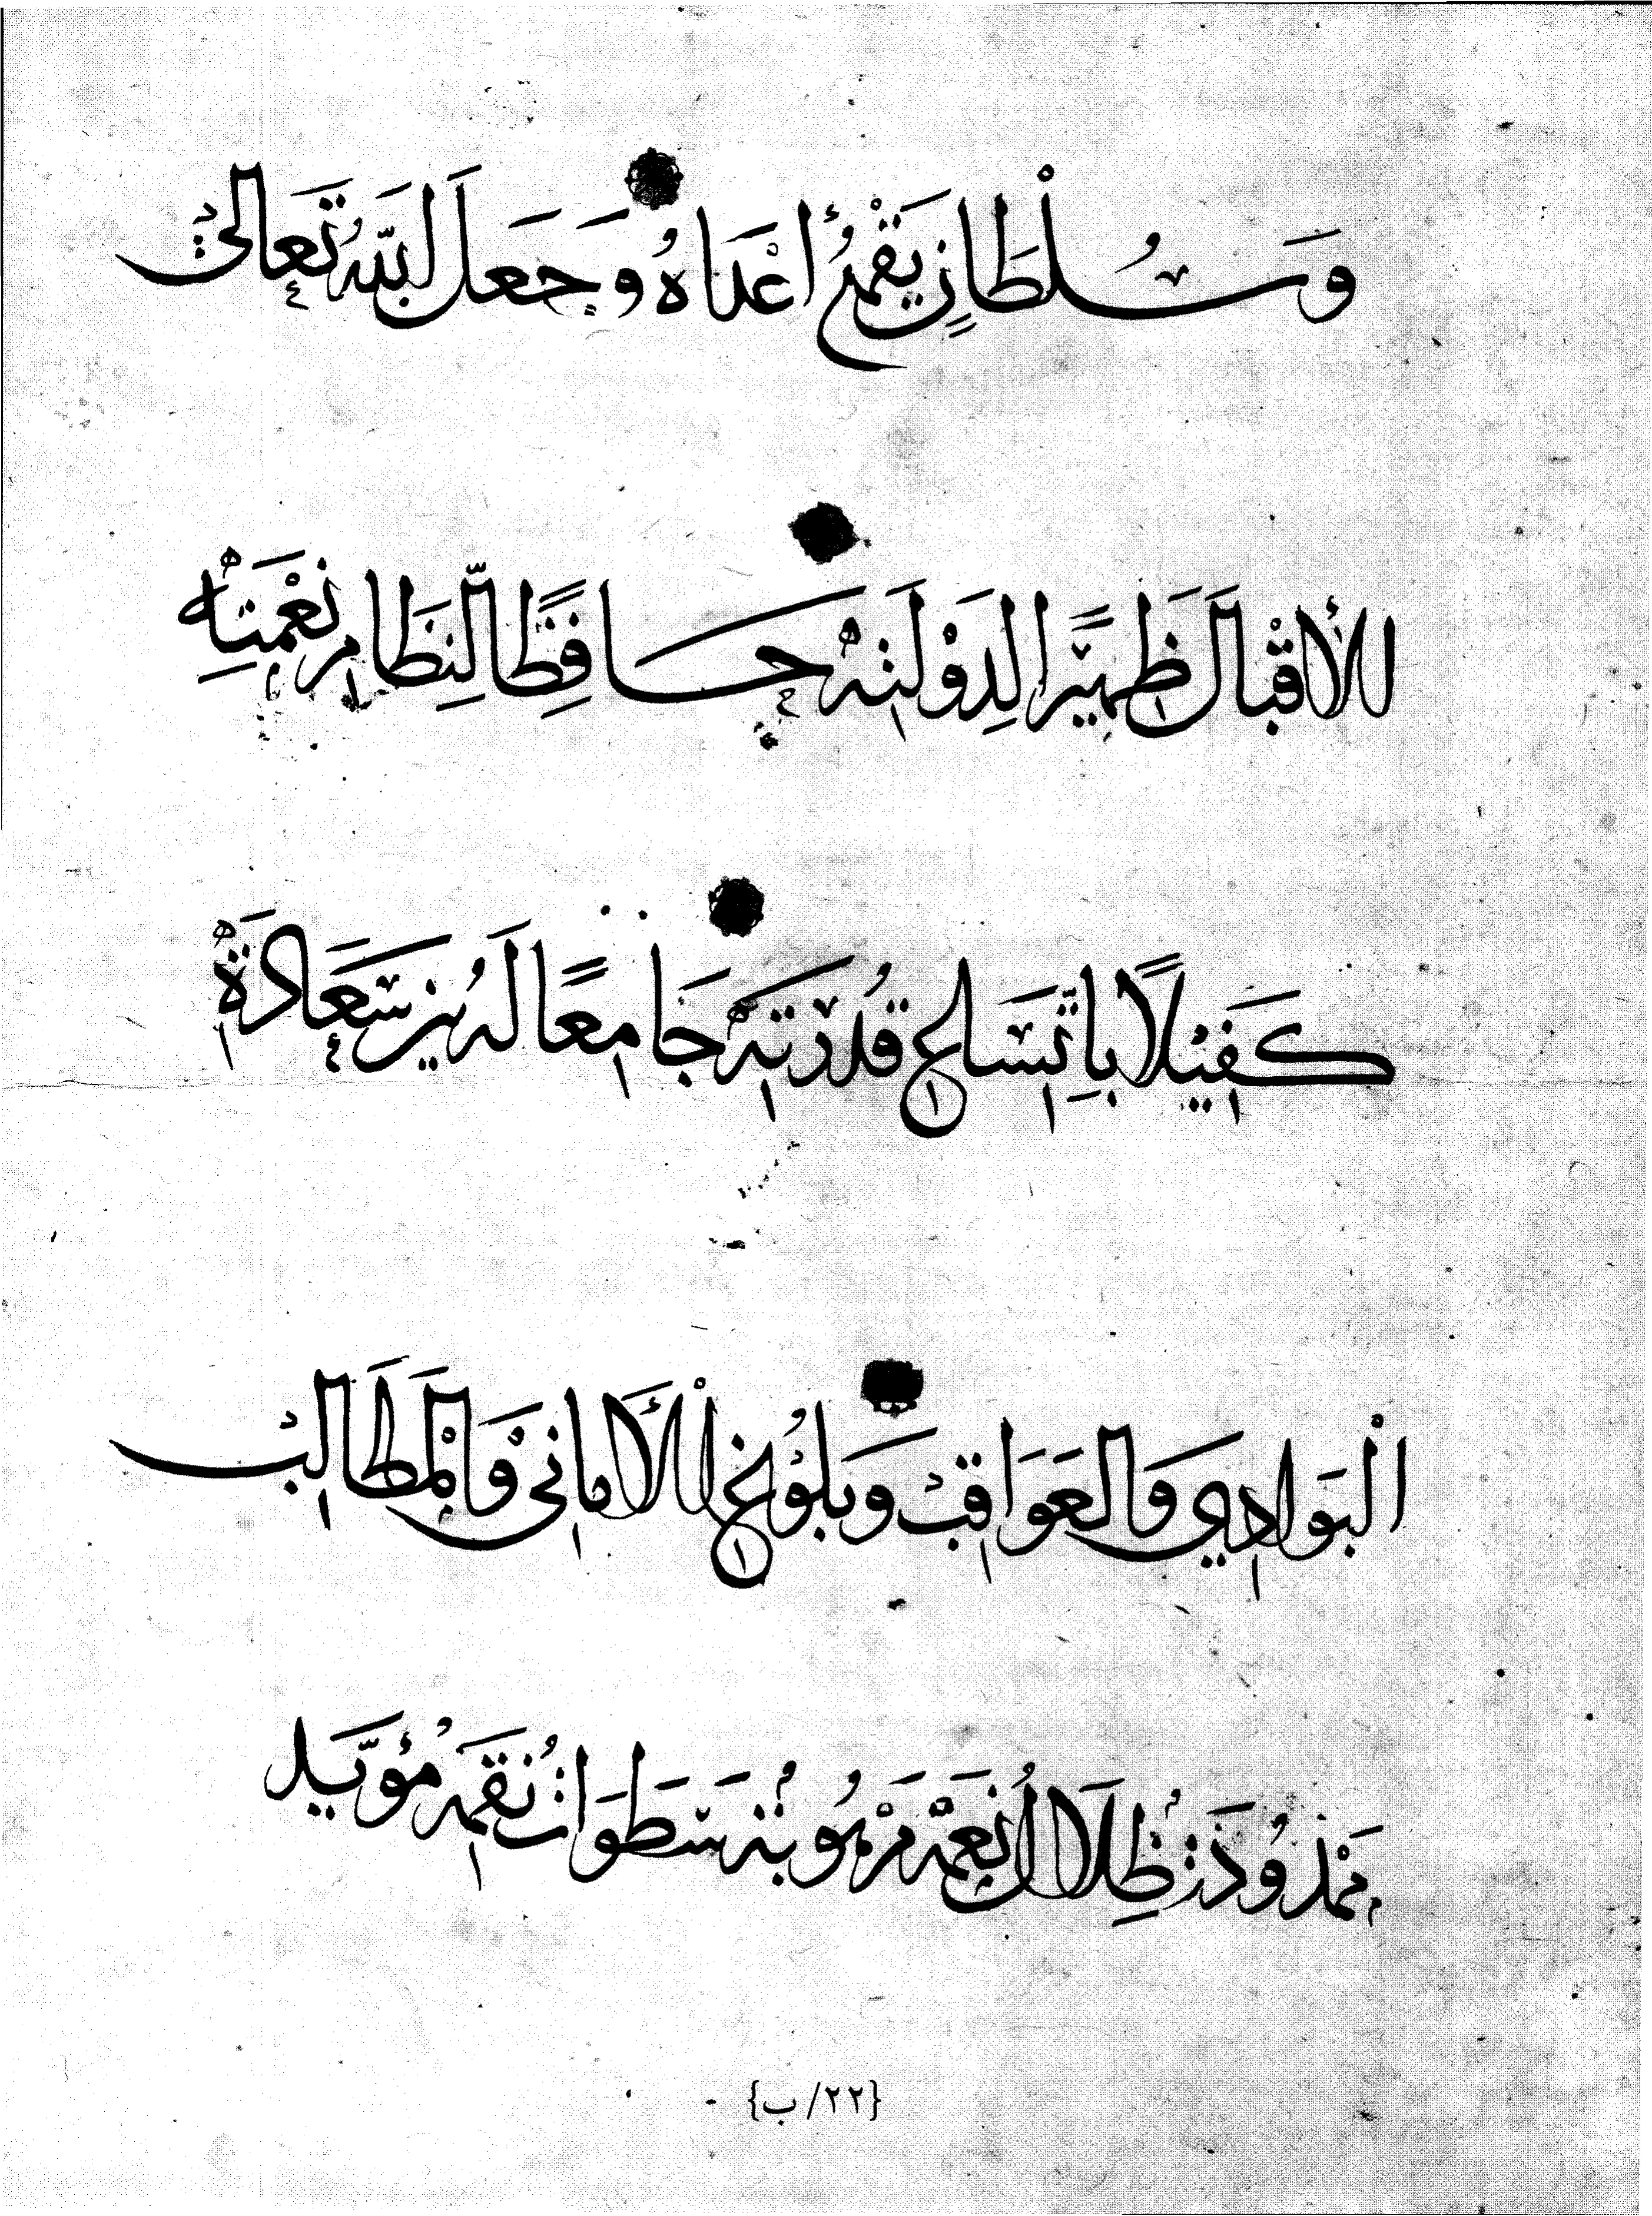 وَسُلْطَانٍ يَقْمَعُ أعْدَاهُ وَجَعَلَ اللّٰهُ تَعَالَى
الأَقْبَالَ ظَهِيْرًا لِدَوْلَتِهِ حَافِظًا لِّنِظَامِ نِعْمَتِهِ
كَفِيْلًا بِاتِّسَاعِ قُدْرَتِهِ جَامِعًا لَهُ بَيْنَ سَعَادَةِ
الْبَوَادِي وَالعَوَاقِبْ وَبُلُوْغِ الْأَمَانِى وَالْمَطَالِبْ
مَمْدُوْدَةٌ ظِلَالُ نِعَمِهِ مَرْهُوْبَةٌ سَطَوَاتُ نِقَمِهِ مُؤَيَّدٍ
{٢٢/ب}